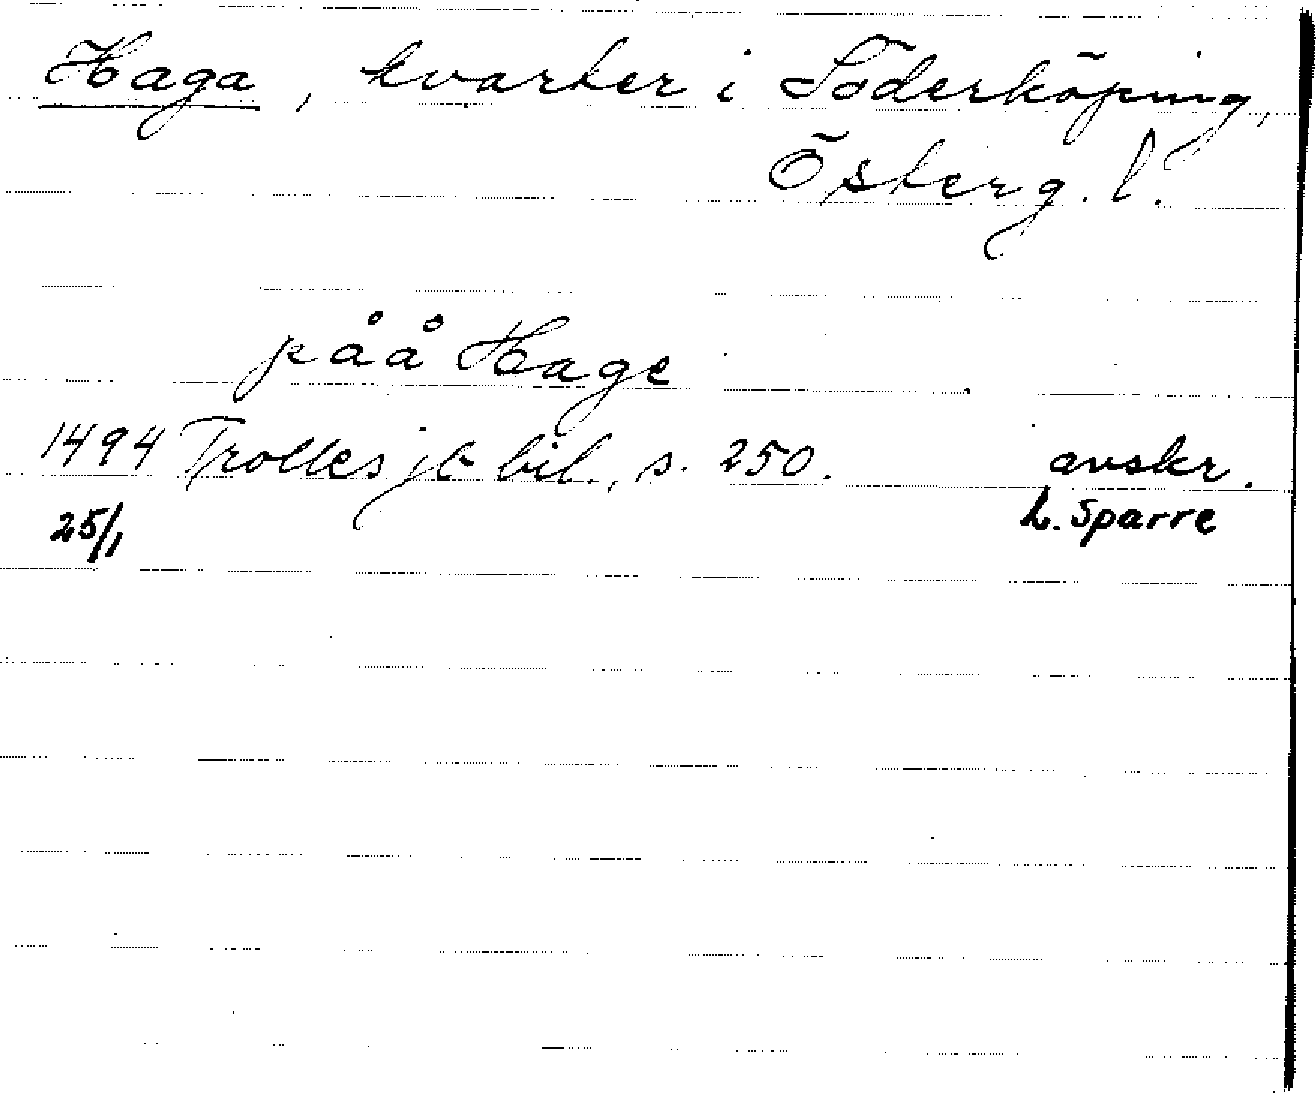 Haga, kvarter i Söderköping,
Österg. l.
påå Hage
1494 Trolles jb bil., s. 250. avskr.
25/1 L. Sparre